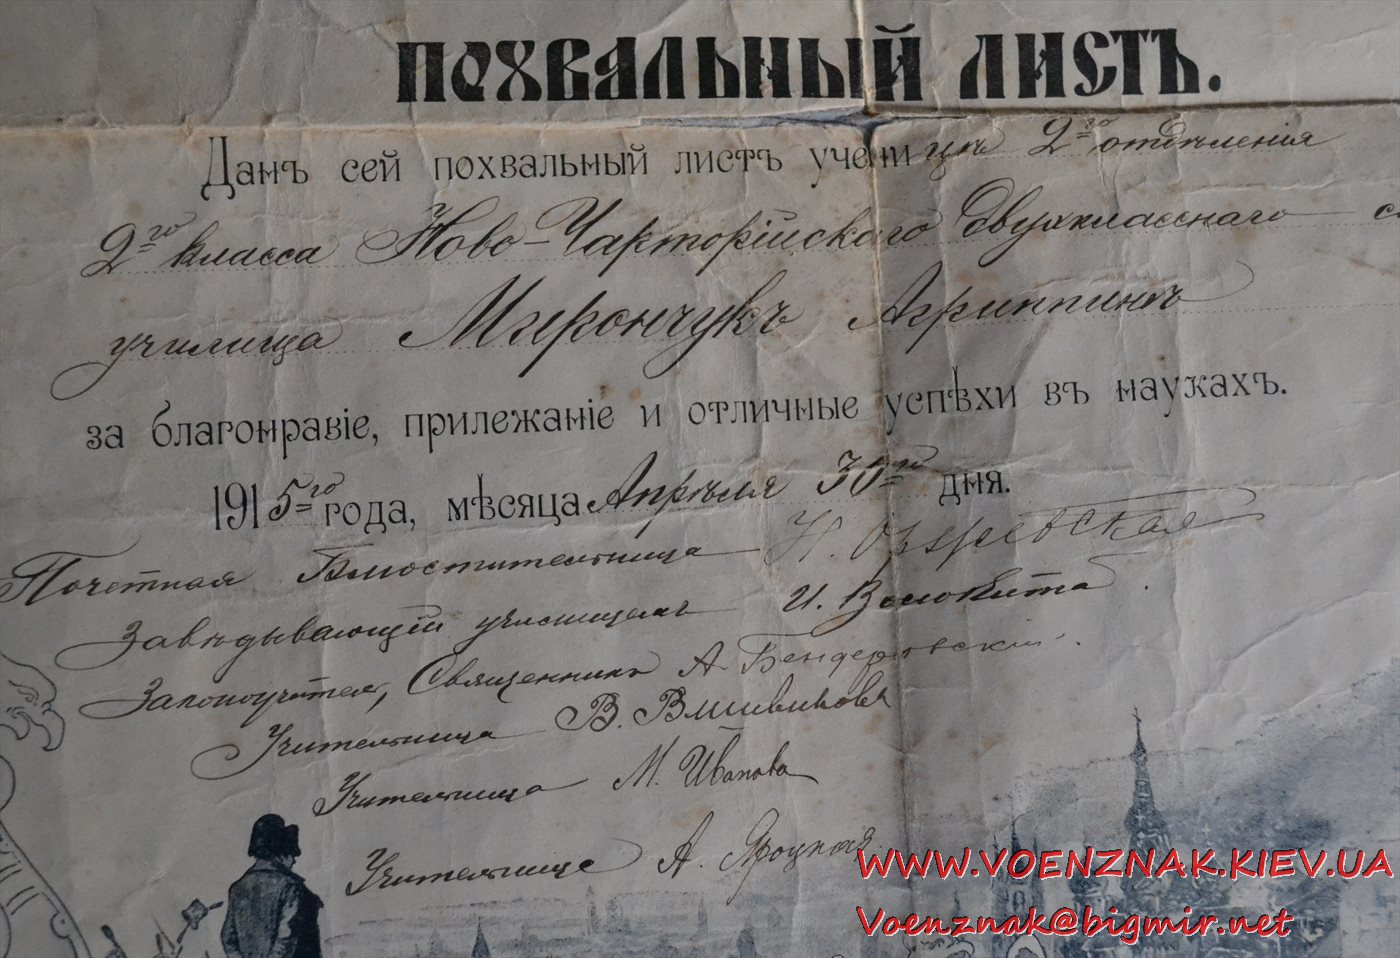 ПОХВАЛЬНЫЙ ЛИСТЪ.
Данъ сей похвальный листъ ученицѣ 2го отдѣленія
2го класса Ново-Чарторійскаго двухкласснаго с
училища Мирончукъ Агриппинѣ
за благонравіе, прилежаніе и отличные успѣхи въ наукахъ.
1915го года, мѣсяца Апрѣля 30го дня.
Почетная Блюстительница Н.
Завѣдывающій училищемъ И. Волокита.
Законоучитель, Священникъ А. Бендеровскій.
Учительница В.
Учительница М. Иванова
Учительница А. Яроцкая
WWW.VOENZNAK.KIEV.UA
Voenznak@bigmir.net